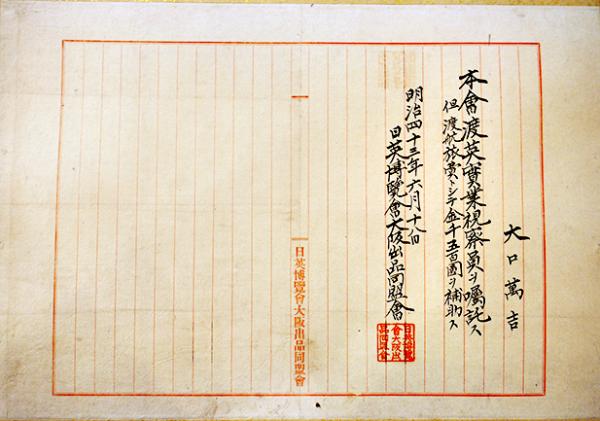 大口萬吉
本會渡英實業視察員ヲ囑託ス
但渡航旅費トシテ金千五百圓ヲ補助ス
明治四十三年六月十八日
日英博覽會大阪出品同盟會
日英博覽會大阪出品同盟會